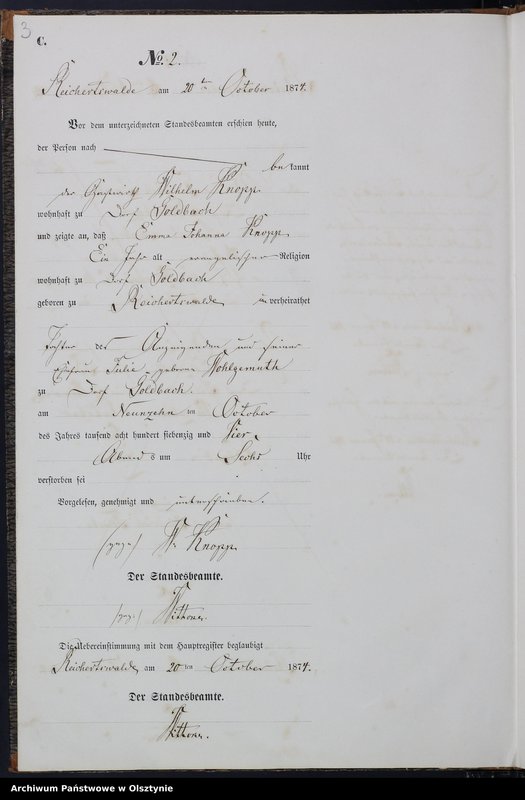 3
C.
No. 2.
Reichertswalde am 20ten October 1874.
Vor dem unterzeichneten Standesbeamten erschien heute,
der Person nach
bekannt
der Gastwirth Wilhelm Knopp
wohnhaft zu Dorf Goldbach
und zeigte an, daß Emma Johanna Knopp
Ein Jahr alt, evangelischer Religion
wohnhaft zu Dorf Goldbach
geboren zu Reichertswalde, unverheirathet
Tochter des Anzeigenden und seiner
Ehefrau Julie geborne Wohlgemuth
zu Dorf Goldbach.
am Neunzehnten October
des Jahres tausend acht hundert siebenzig und Vier,
Abends um Sechs Uhr
verstorben sei
Vorgelesen, genehmigt und unterschrieben.
(gez.) W. Knopp
Der Standesbeamte.
(gez.)
Die Uebereinstimmung mit dem Hauptregister beglaubigt
Reichertswalde, am 20ten October 1874.
Der Standesbeamte.
Archiwum Państwowe w Olsztynie